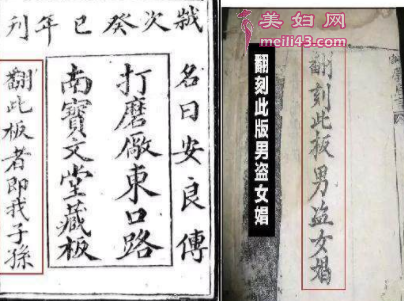 歲次癸巳年刊
名曰安良傳
打磨廠東口路
南寶文堂藏板
翻此板者即我子孫
美妇网
meili43.com
翻刻此版男盗女娼
翻刻此板男盗女娼